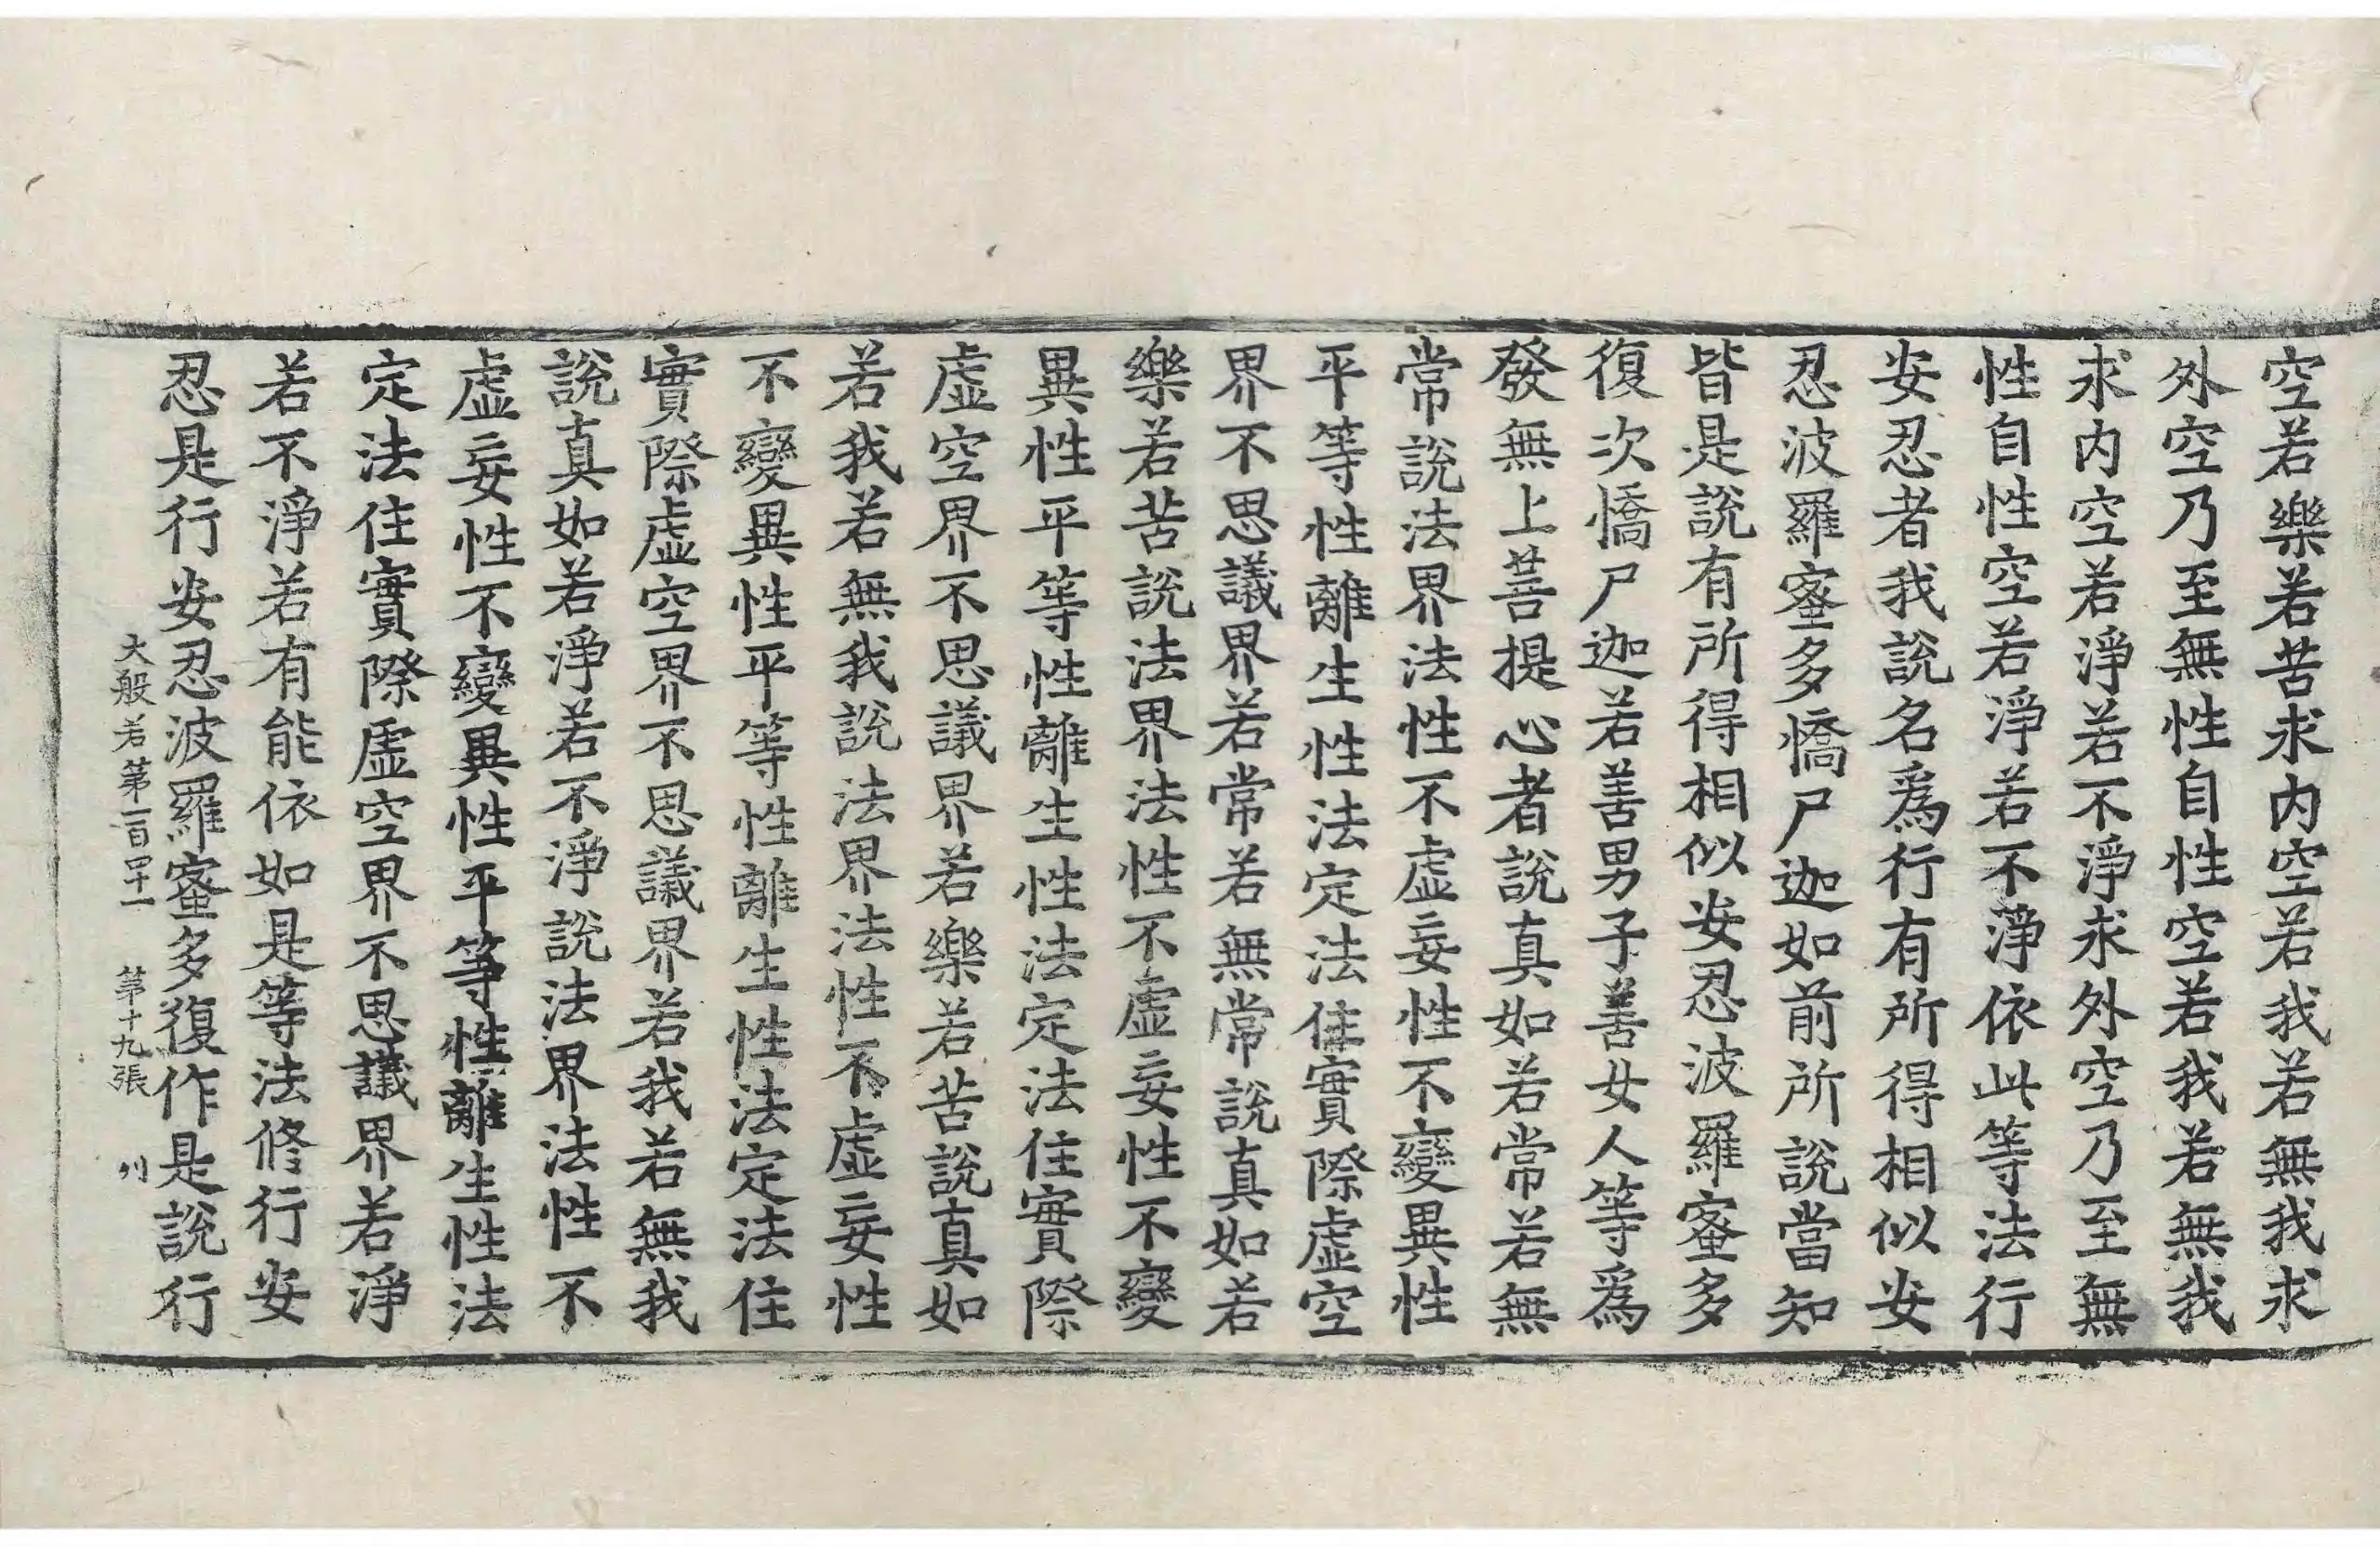 空若樂若苦求内空若我若無我求
外空乃至無性自性空若我若無我
求内空若淨若不淨求外空乃至無
性自性空若淨若不淨依此等法行
安忍者我說名爲行有所得相似安
忍波羅蜜多憍尸迦如前所說當知
皆是說有所得相似安忍波羅蜜多
復次憍尸迦若善男子善女人等爲
發無上菩提心者說真如若常若無
常說法界法性不虛妄性不變異性
平等性離生性法定法住實際虛空
界不思議界若常若無常說真如若
樂若苦說法界法性不虛妄性不變
異性平等性離生性法定法住實際
虛空界不思議界若樂若苦說真如
若我若無我說法界法性不虛妄性
不變異性平等性離生性法定法住
實際虛空界不思議界若我若無我
說真如若淨若不淨說法界法性不
虛妄性不變異性平等性離生性法
定法住實際虛空界不思議界若淨
若不淨若有能依如是等法修行安
忍是行安忍波羅蜜多復作是說行
大般若第一百四十一 第十九張